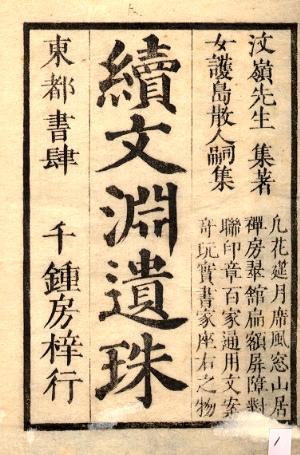 汶嶺先生 集著
女護島散人嗣集
凢花莚月席風窓山居
禪房羣舘扁額屏障對
聯印章百家通用文案
奇玩實書家座右之物
續文淵遺珠
東都書肆 千鍾房梓行
1